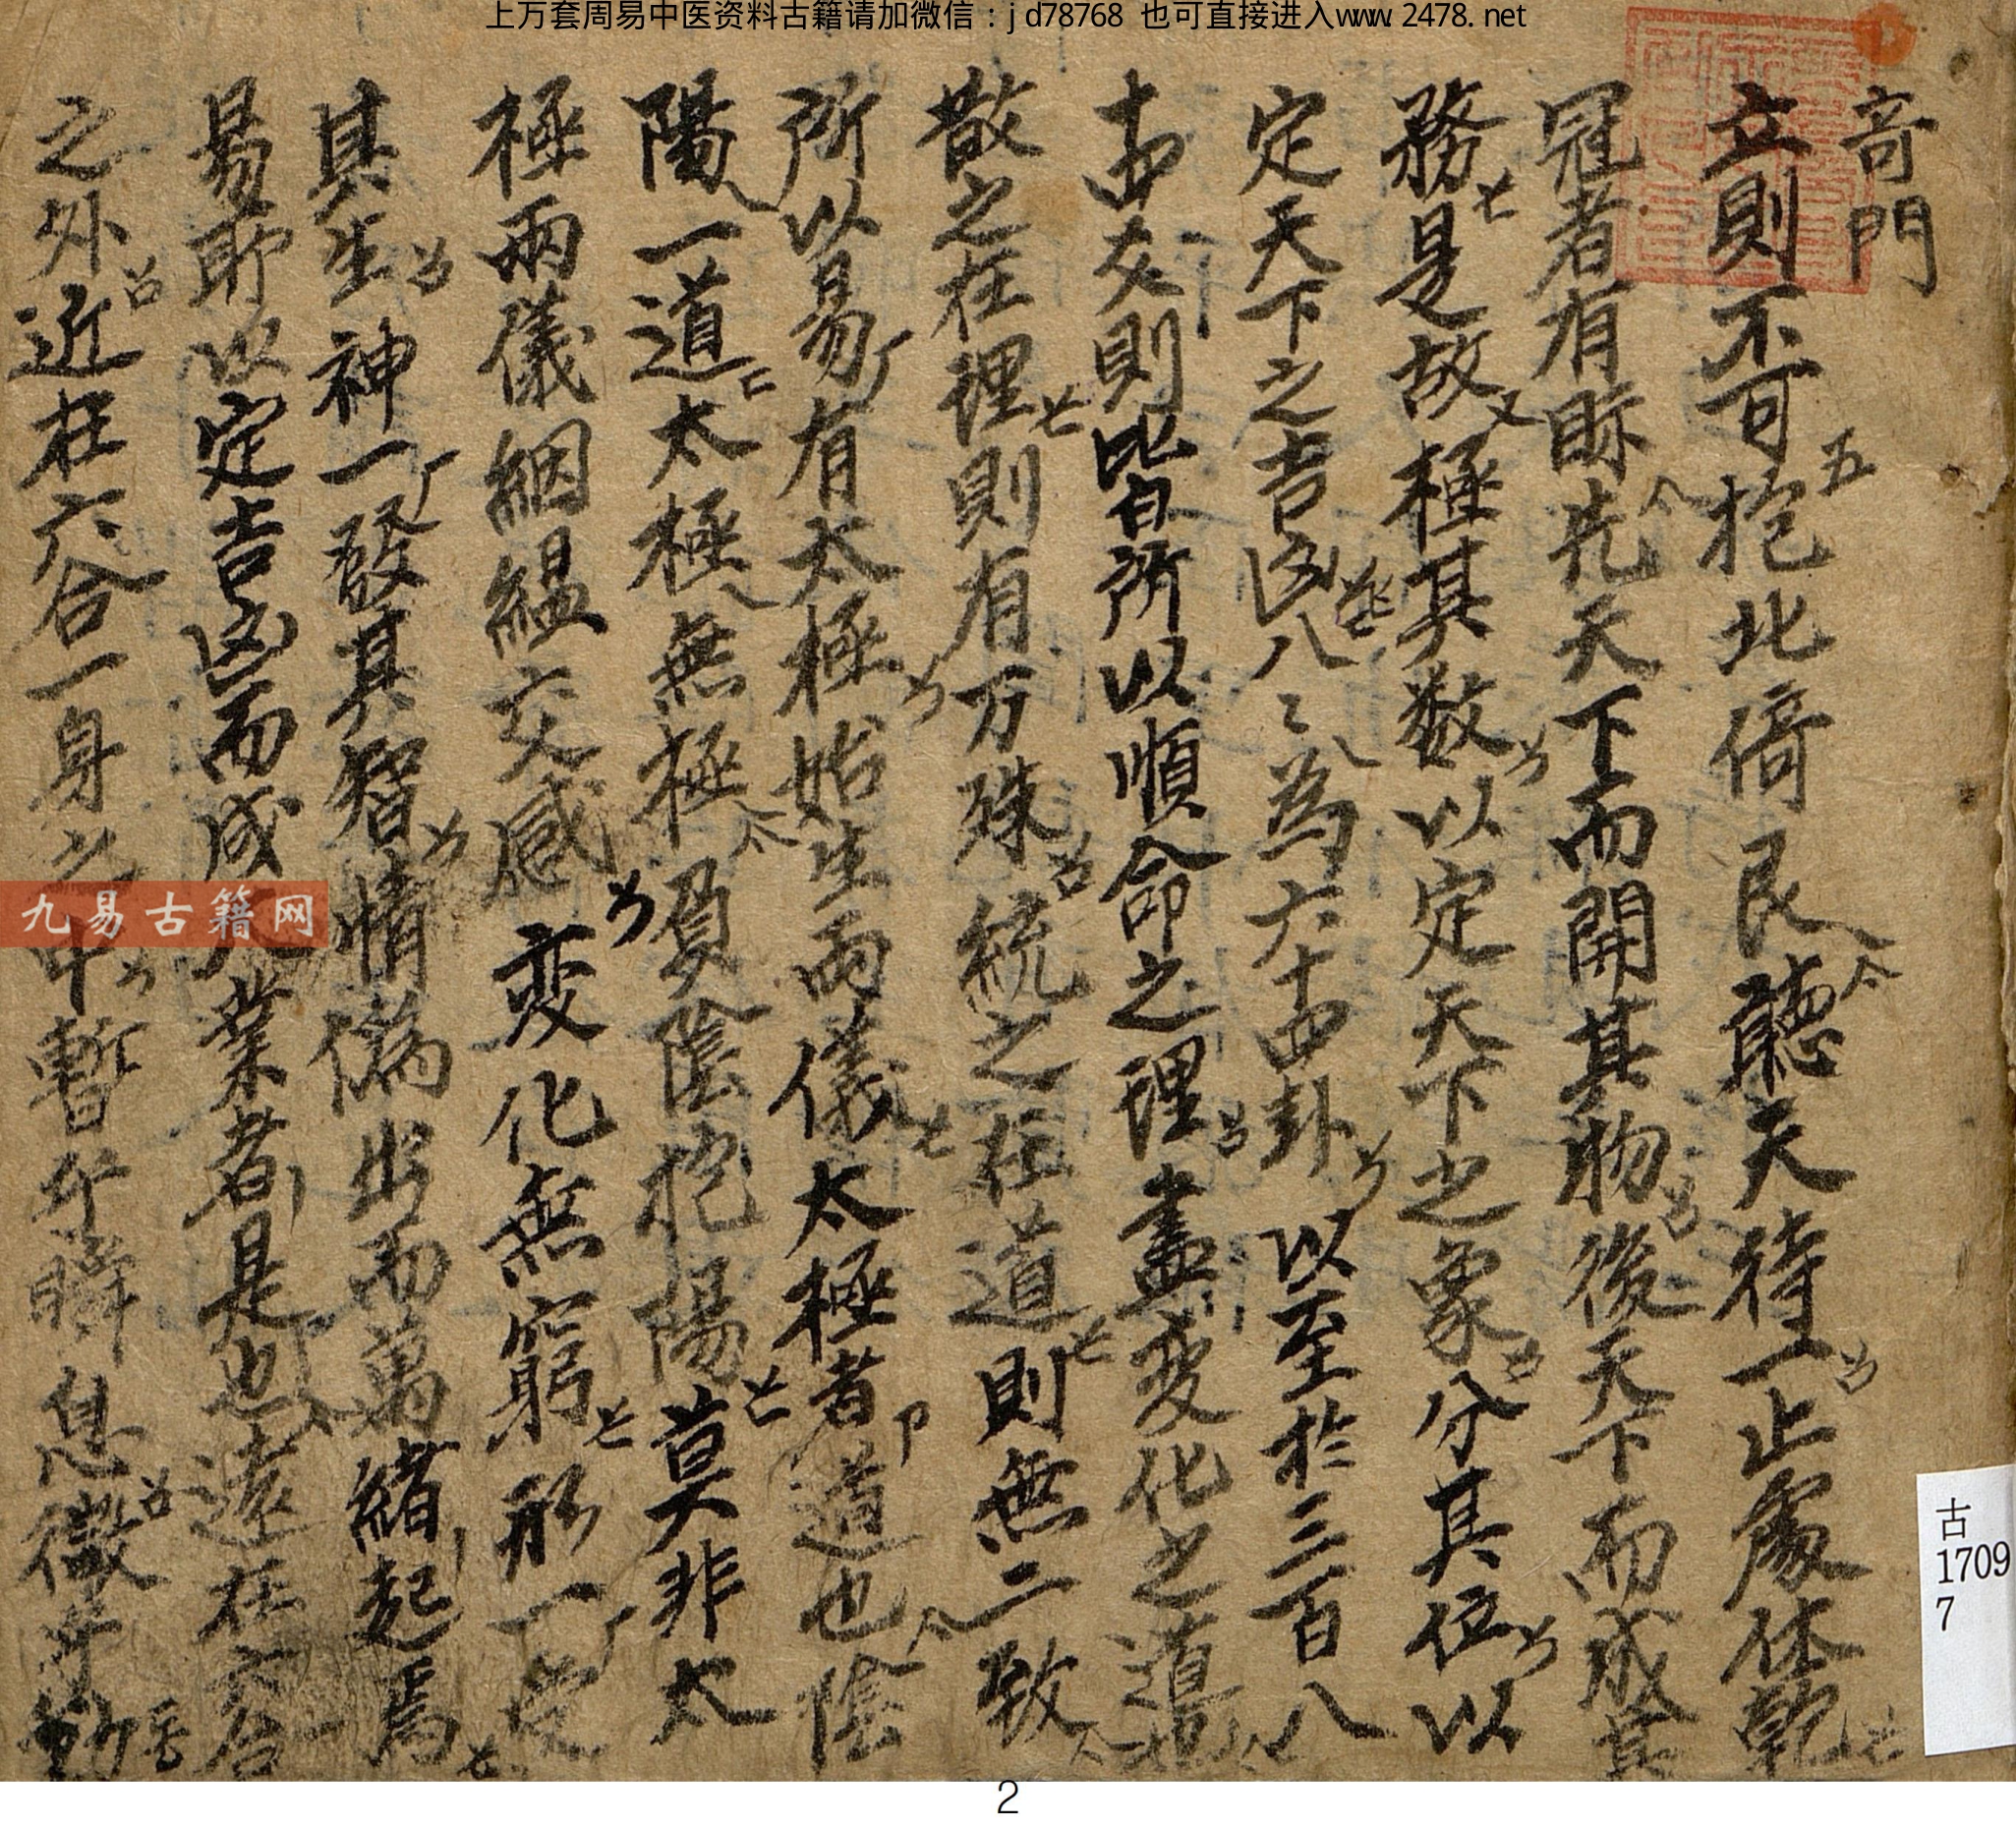 上万套周易中医资料古籍请加微信：jd78768 也可直接进入www.2478.net
奇門
立則不可抱北倚艮聽天待一止處休乾
冠者有眎先天下而開其物後天下而成其
務是故極其数以定天下之象分其位以
定天下之吉凶八〻為六十四卦以至於三百八
十四爻則皆所以順命之理盡变化之道
散之在理則有万殊統之在道則無二致
所以易有太極始生兩儀太極者道也陰
陽一道太極無極負陰抱陽莫非太
極兩儀絪縕交感变化無窮形一受
其生神一發其智情偽出而萬緒起焉
易所以定吉凶而成大業者是也遠在六合
之外近在六合一身之中暫乎瞬息微乎動
九易古籍网
古
1709
7
2